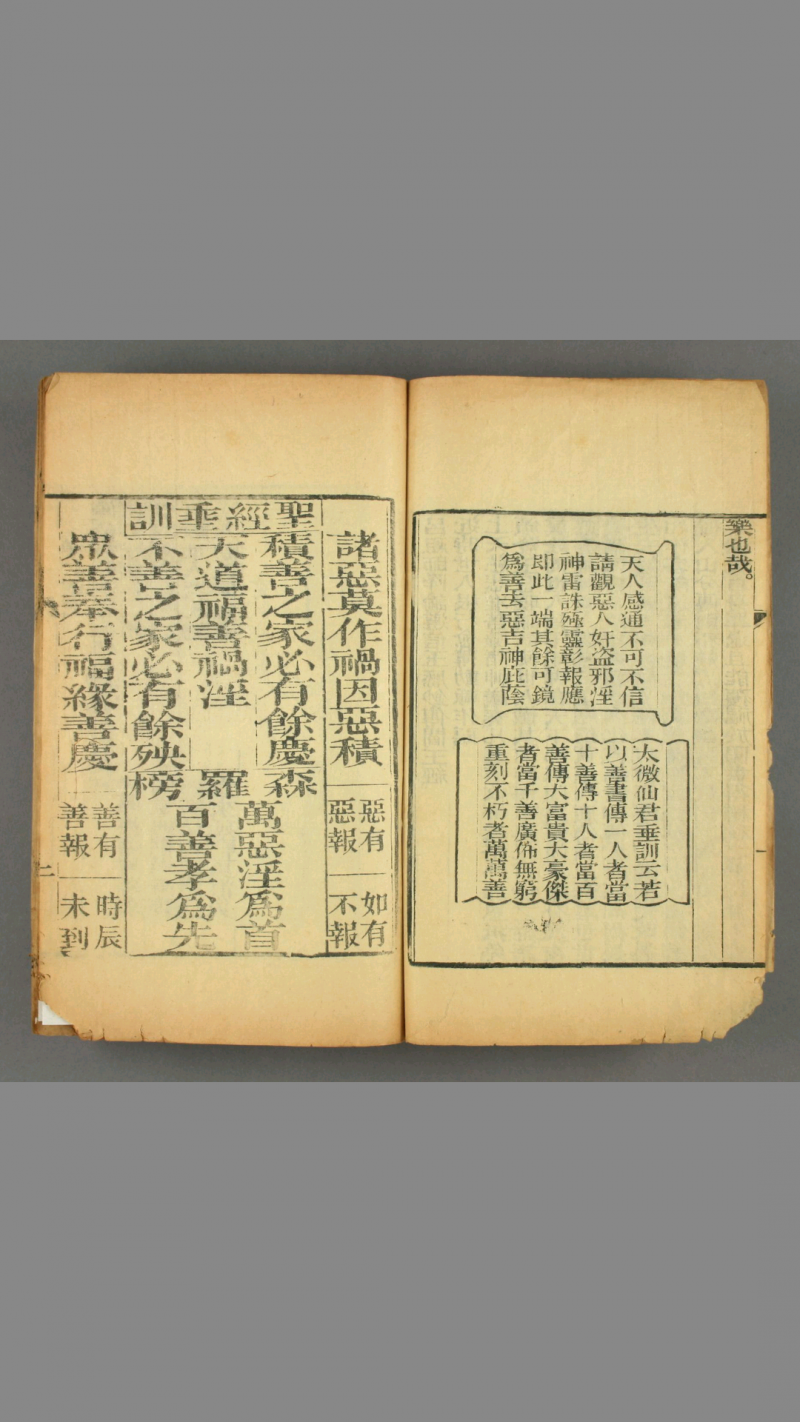 樂也哉。
天人感通不可不信
請觀惡人奸盜邪淫
神雷誅殛靈彰報應
即此一端其餘可鏡
爲善去惡吉神庇蔭
太微仙君垂訓云若
以善書傳一人者當
十善傳十人者當百
善傳大富貴大豪傑
者當千善廣佈無窮
重刻不朽者萬萬善
諸惡莫作禍因惡積
惡有
惡報
如有
不報
聖經垂訓
積善之家必有餘慶
天道福善禍淫
不善之家必有餘殃
森羅榜
萬惡淫爲首
百善孝爲先
眾善奉行福緣善慶
善有
善報
時辰
未到